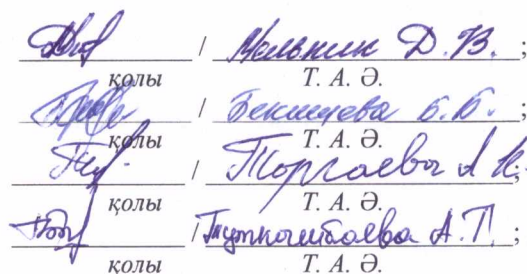 / Мельник Д. В. ;
қолы Т. А. Ә.
/ Бекишева Б. Б. ;
қолы Т. А. Ә.
/ Торгаева А К;
қолы Т. А. Ә.
/ А. Т. ;
қолы Т. А. Ә.